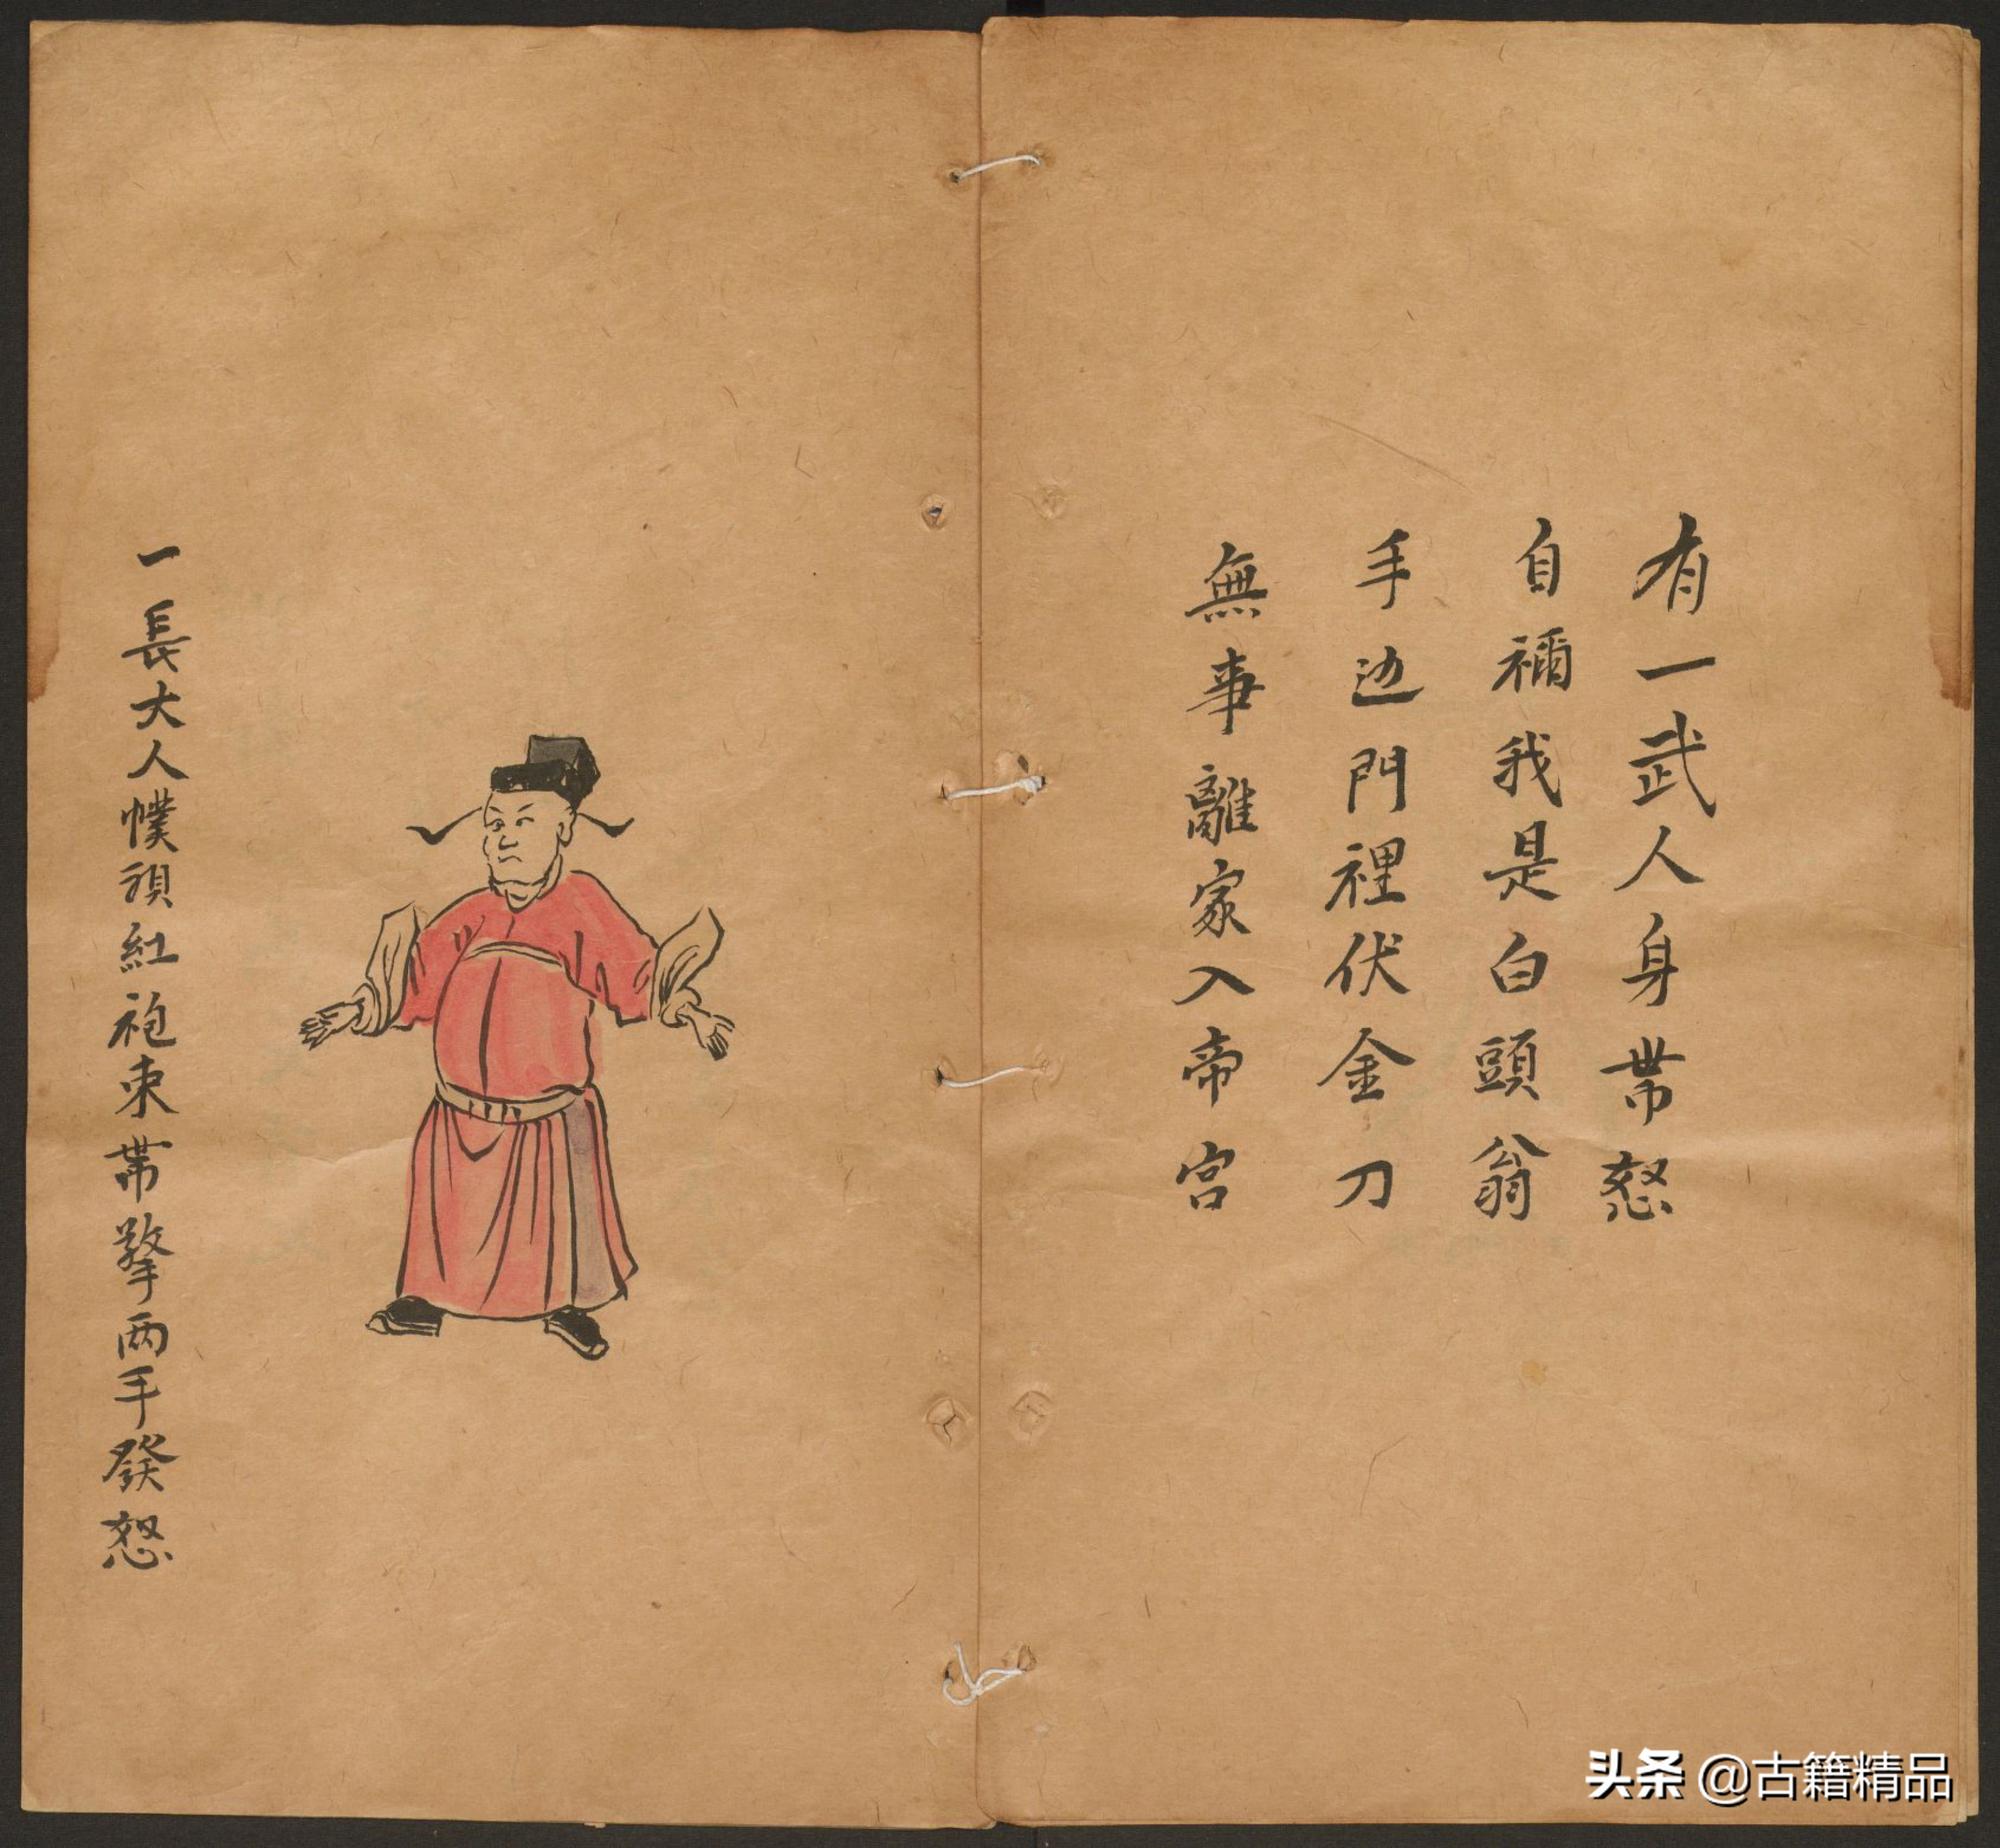 有一武人身帶怒
自稱我是白頭翁
手边門裡伏金刀
無事離家入帝宮
一長大人幞頭紅袍束帶擎两手發怒
头条 @古籍精品